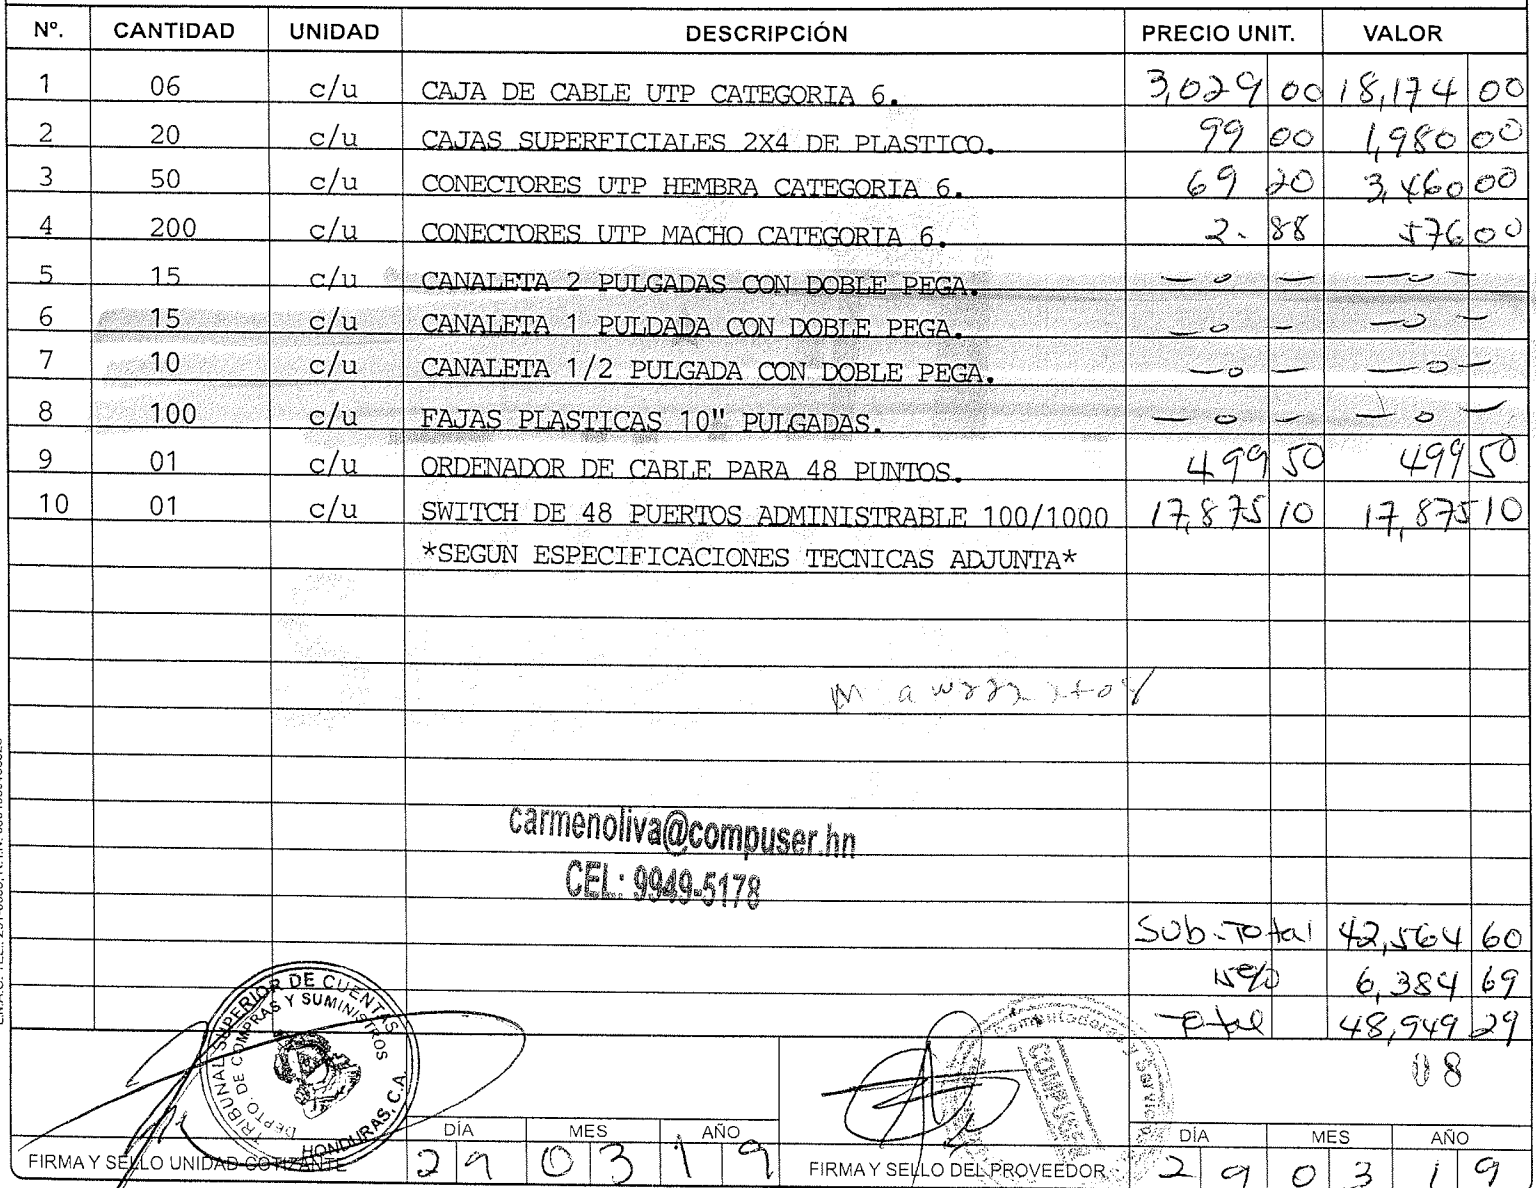 Nº. CANTIDAD UNIDAD DESCRIPCIÓN PRECIO UNIT. VALOR
1 06 c/u CAJA DE CABLE UTP CATEGORIA 6. 3,029 00 18,174 00
2 20 c/u CAJAS SUPERFICIALES 2X4 DE PLASTICO. 99 00 1,980 00
3 50 c/u CONECTORES UTP HEMBRA CATEGORIA 6. 69 20 3,460 00
4 200 c/u CONECTORES UTP MACHO CATEGORIA 6. 2. 88 576 00
5 15 c/u CANALETA 2 PULGADAS CON DOBLE PEGA. — 0 — — 0 —
6 15 c/u CANALETA 1 PULDADA CON DOBLE PEGA. — 0 — — 0 —
7 10 c/u CANALETA 1/2 PULGADA CON DOBLE PEGA. — 0 — — 0 —
8 100 c/u FAJAS PLASTICAS 10" PULGADAS. — 0 — — 0 —
9 01 c/u ORDENADOR DE CABLE PARA 48 PUNTOS. 499 50 499 50
10 01 c/u SWITCH DE 48 PUERTOS ADMINISTRABLE 100/1000 17,875 10 17,875 10
*SEGUN ESPECIFICACIONES TECNICAS ADJUNTA*
carmenoliva@compuser.hn
CEL: 9949-5178
Sub-Total 42,564 60
15% 6,384 69
Total 48,949 29
08
TRIBUNAL SUPERIOR DE CUENTAS
DEPTO. DE COMPRAS Y SUMINISTROS
HONDURAS, C.A.
Computadoras y
COMPUSER
DÍA MES AÑO DÍA MES AÑO
FIRMA Y SELLO UNIDAD COTIZANTE 29 03 19 FIRMA Y SELLO DEL PROVEEDOR 29 03 19